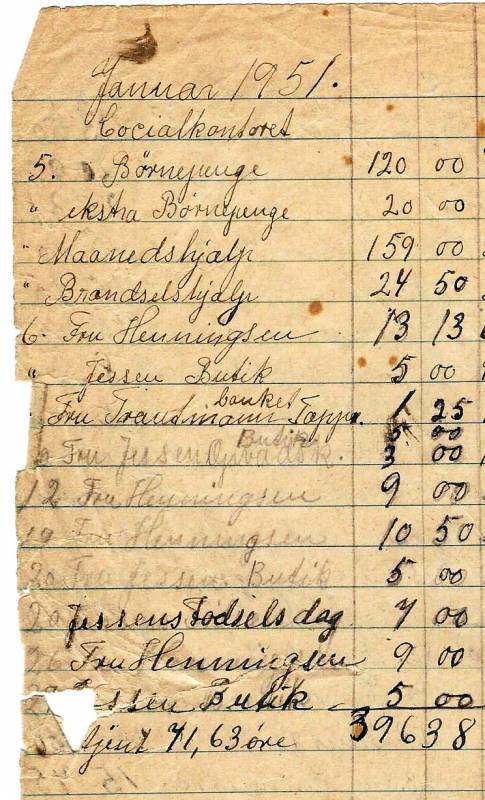 Januar 1951.
Socialkontoret
5. Börnepenge 120 00
" ekstra Börnepenge 20 00
" Maanedshjælp 159 00
" Brændselshjælp 24 50
6. Fru Henningsen 13 13
" Jessen Butik 5 00
banket
" Fru Trautmann Tæpper. 1 25
Butik 5 00
Fru Jessen Opvadsk. 3 00
12 Fru Henningsen 9 00
19 Fru Henningsen 10 50
20 Fru Jessen Butik 5 00
20 Jessens Fødselsdag 7 00
26 Fru Henningsen 9 00
Jessen Butik 5 00
tjent 71,63 øre 396 38